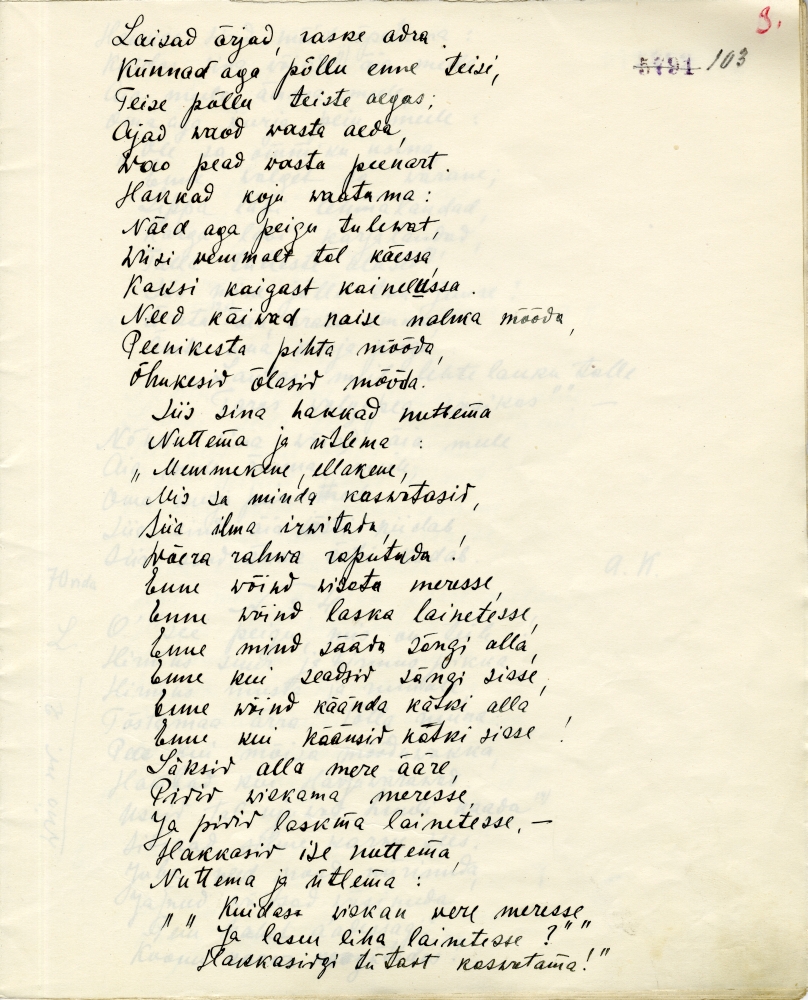 9.
5791 103
Laisad ärjad, raske adra.
Künnad aga põllu enne teisi,
Teise põllu teiste aegas;
Ajad waod wasta aeda,
Wao pead wasta peenart.
Hakkad koju waatama:
Näed aga peigu tulewat,
Wiisi wemmalt tal käessa,
Kaksi kaigast kainelussa.
Need käiwad naise nahka mööda,
Peenikesta pihta mööda,
Õhukesid õlasid mööda.
Siis sina hakkad nuttema
Nuttema ja ütlema:
„Memmekene, ellakene,
Mis sa minda kaswatasid,
Siia ilma irwitada,
Wõera rahwa raputada!
Enne wõind wisata meresse,
Enne wõind laska lainetesse,
Enne mind sääda sängi alla,
Enne kui seadsid sängi sisse,
Enne wõind käända kätki alla
Enne kui käänsid kätki sisse!
Läksid alla mere ääre,
Pidid wiskama meresse,
Ja pidid laskma lainetesse, —
Hakkasid ise nuttema,
Nuttema ja ütlema:
„„Kuidass wiskan were meresse,
Ja lasen liha lainetesse?""
Hakkasirgi tütart kaswatama!"